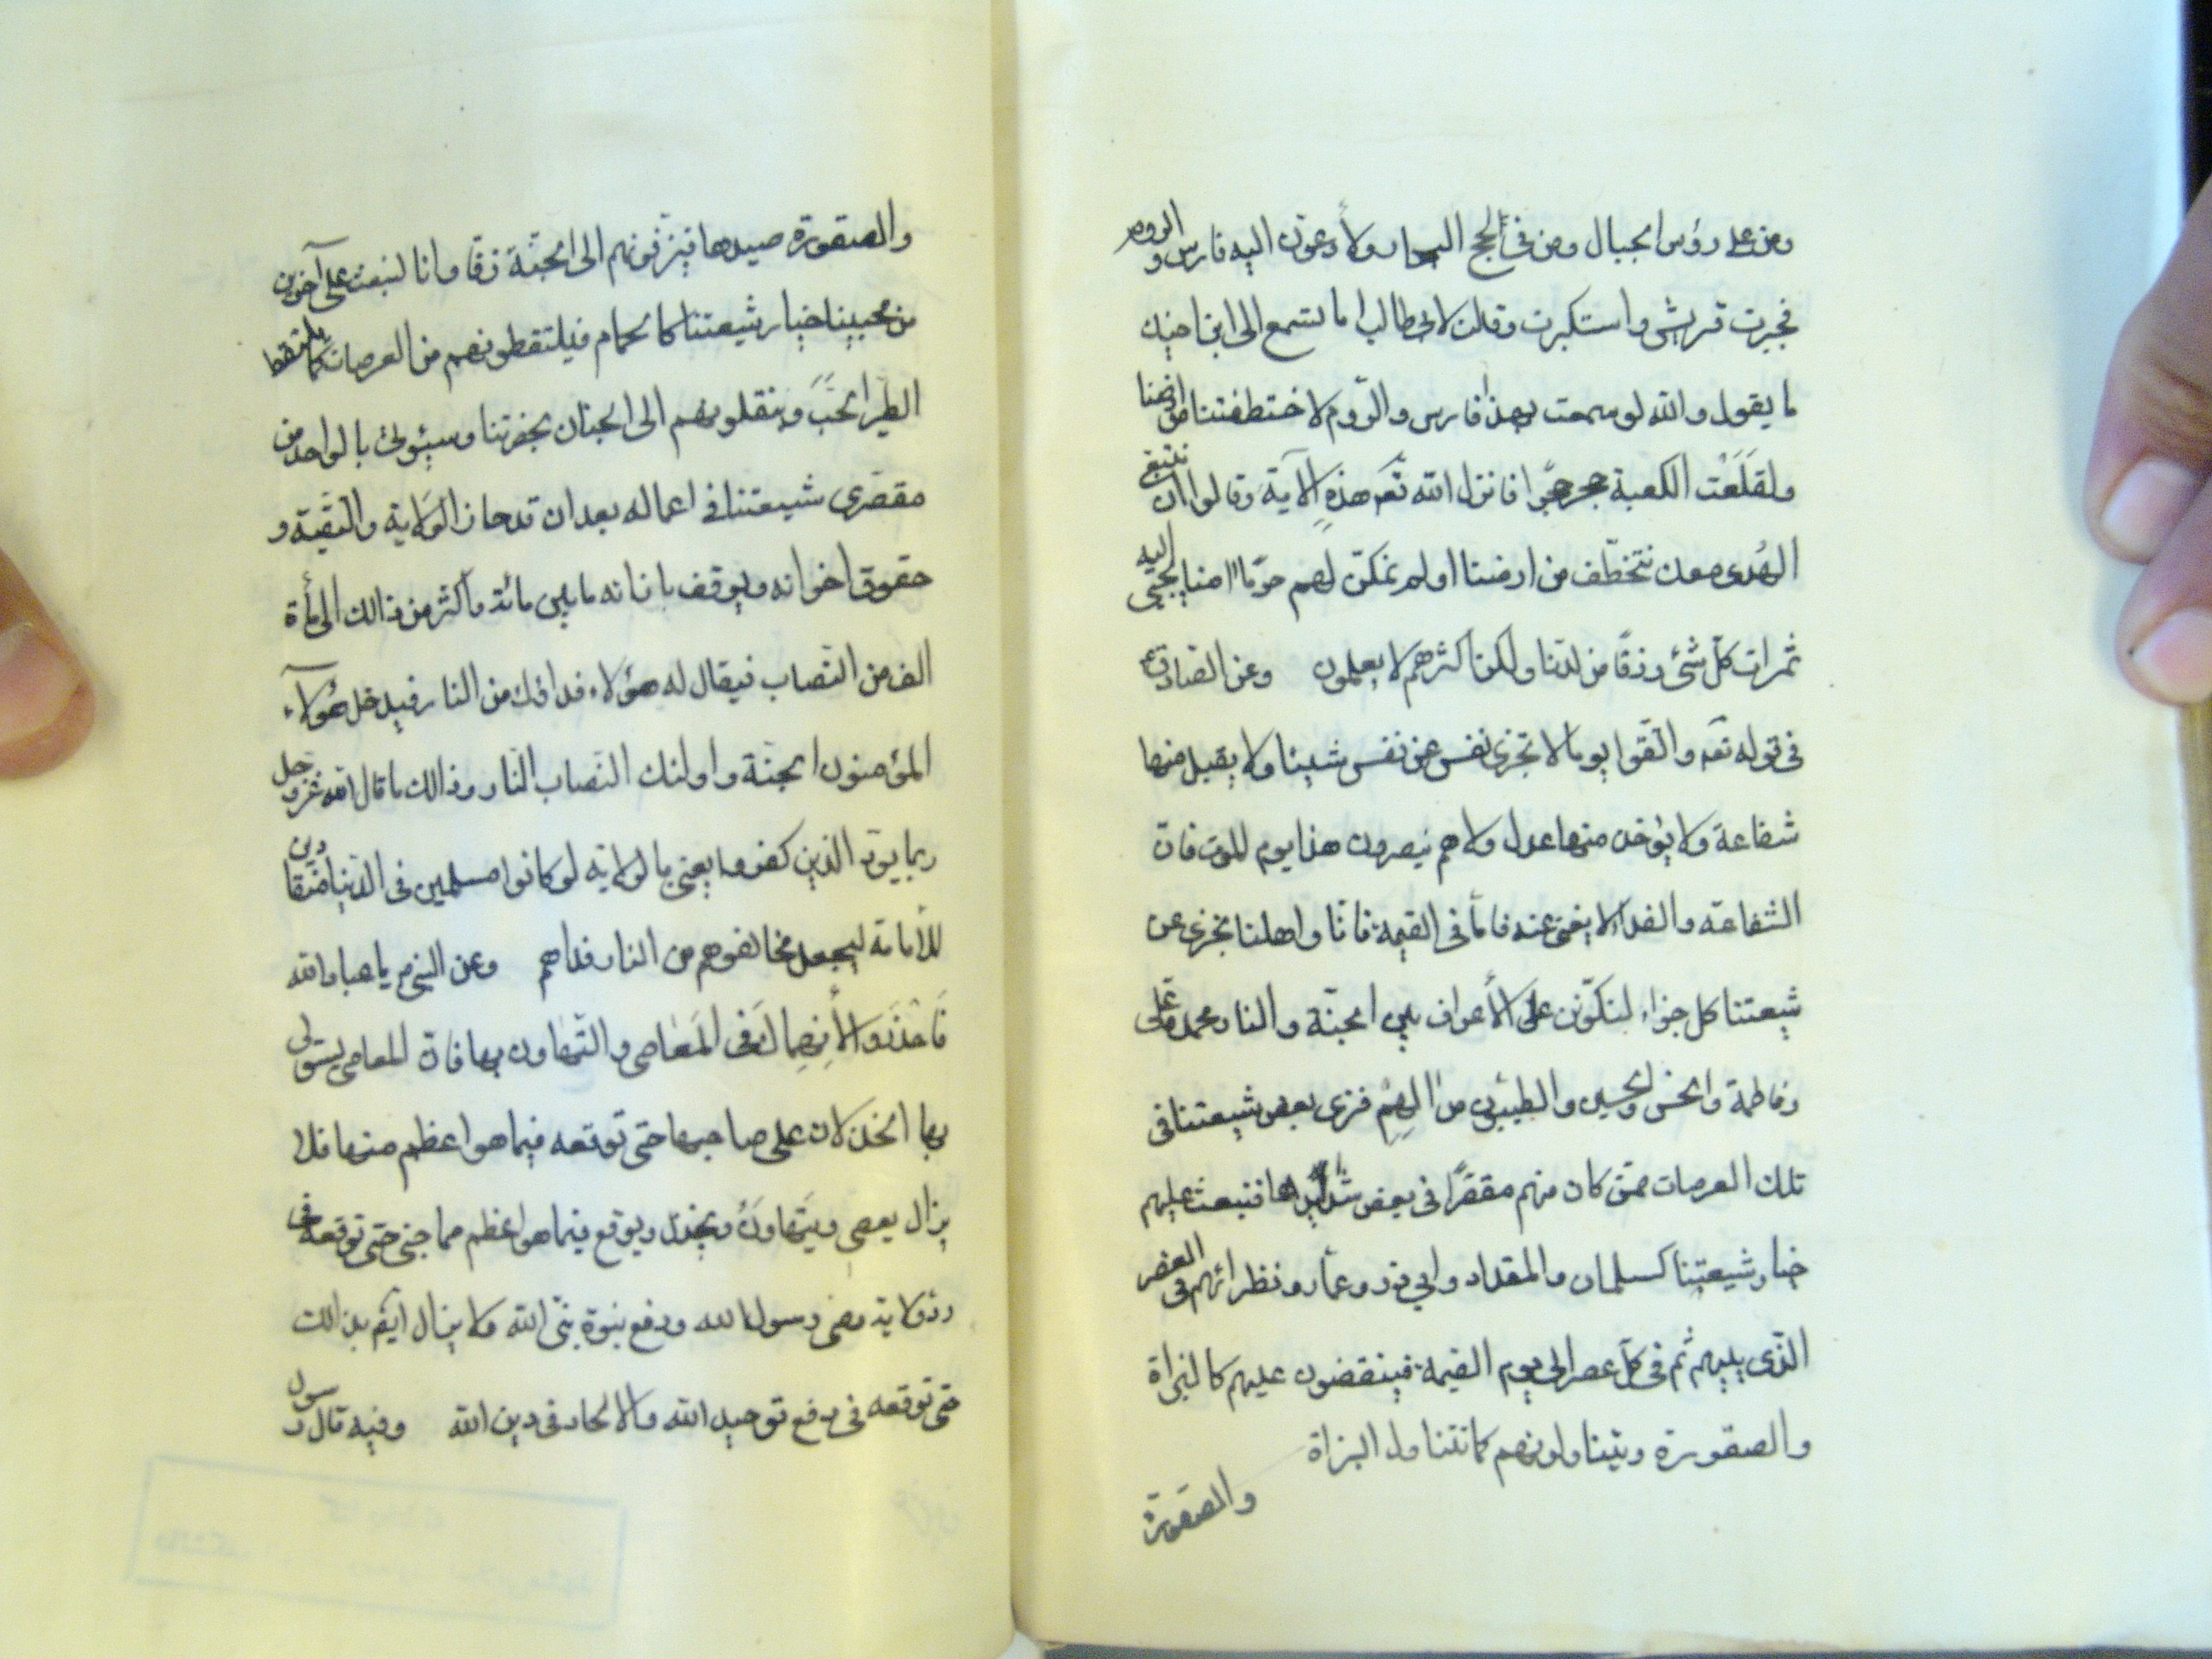 ومن على رؤس الجبال ومن في لجج البحار ولأدعون اليه فارس والروم
فجبرت قريش واستكبرت وقالت لابي طالب اما تسمع الى ابن اخيك
ما يقول والله لو سمعت بهذا فارس والرّوم لاختطفتنا من ارضنا
ولقلعت الكعبة حجرحجرا فانزل الله تعم هذه الآية وقالوا ان نتبع
الهُدى معك نتخطّف من ارضنا اولم نمكّن لهم حرمًا امنا يجبى اليه
ثمرات كلّ شئ رزقًا من لدنا ولكن اكثرهم لا يعلمون وعن الصادق ع
فى قوله تعم واتقوا يوما لا تجزى نفس عن نفس شيئا ولا يقبل منها
شفاعة ولا يؤخذ منها عدل ولا هم ينصرون هذا يوم الموت فان
الشفاعة والفداء لا يغنى عنه فامّا فى القيمة فانّا واهلنا نجزى عن
شيعتنا كل جزاء لنكوّنن على الأعراف بين الجنّة والنار محمد وعلى
وفاطمة والحسن والحسين والطيبين من الهم فنرى بعض شيعتنا فى
تلك العرصات ممّن كان منهم مقصّرًا فى بعض شدائدها فنبعث عليهم
خيار شيعتنا كسلمان والمقداد وابي ذر وعمّار ونظرائهم فى العصر
الذى يليهم ثم فى كلّ عصر الى يوم القيمة فينقضون عليهم كالبزاة
والصقورة ويتناولونهم كما تتناول البزاة
والصقورة
والصقورة صيدها فيزفّونهم الى الجنّة زفّا وانا لنبعث على آخرين
من محبينا خيار شيعتنا كالحمام فيلتقطونهم من العرصات كما يلتقط
الطير الحَبّ وينقلونهم الى الجنان بحضرتنا وسيؤتى بالواحد من
مقصّرى شيعتنا فى اعماله بعد ان قد حاز الوَلاية والتقيّة و
حقوق اخوانه ويوقف بازائه ما بين مائة واكثر من ذالك الى مأة
الف من النّصاب فيقال له هؤلاء فداؤك من النار فيدخل هؤلاء
المؤمنون الجنّة واولئك النّصاب النّار وذالك ما قال الله عزوجل
ربما يودّ الذين كفروا يعنى بالولاية لو كانوا مسلمين فى الدّنيا منقادين
للأمامة ليجعل مخالفوهم من النار فداهم وعن النبي ص يا عباد الله
فَاحْذَرُوا الأنهِماك فى المَعاصى والتّهاون بها فانّ المعاصى يستولى
بها الخذلان على صاحبها حتى توقعه فيما هو اعظم منها فلا
يزال يعصى ويَتَهاوَنُ ويخذل ويوقع فيما هو اعظم مما جنى حتى توقعه فى
ردّ ولاية وصى رسول الله ودفع نبوّة نبىّ الله ولا يزال ايضم بذالك
حتى توقعه فى دفع توحيد الله والالحاد فى دين الله وفيه قال رسول